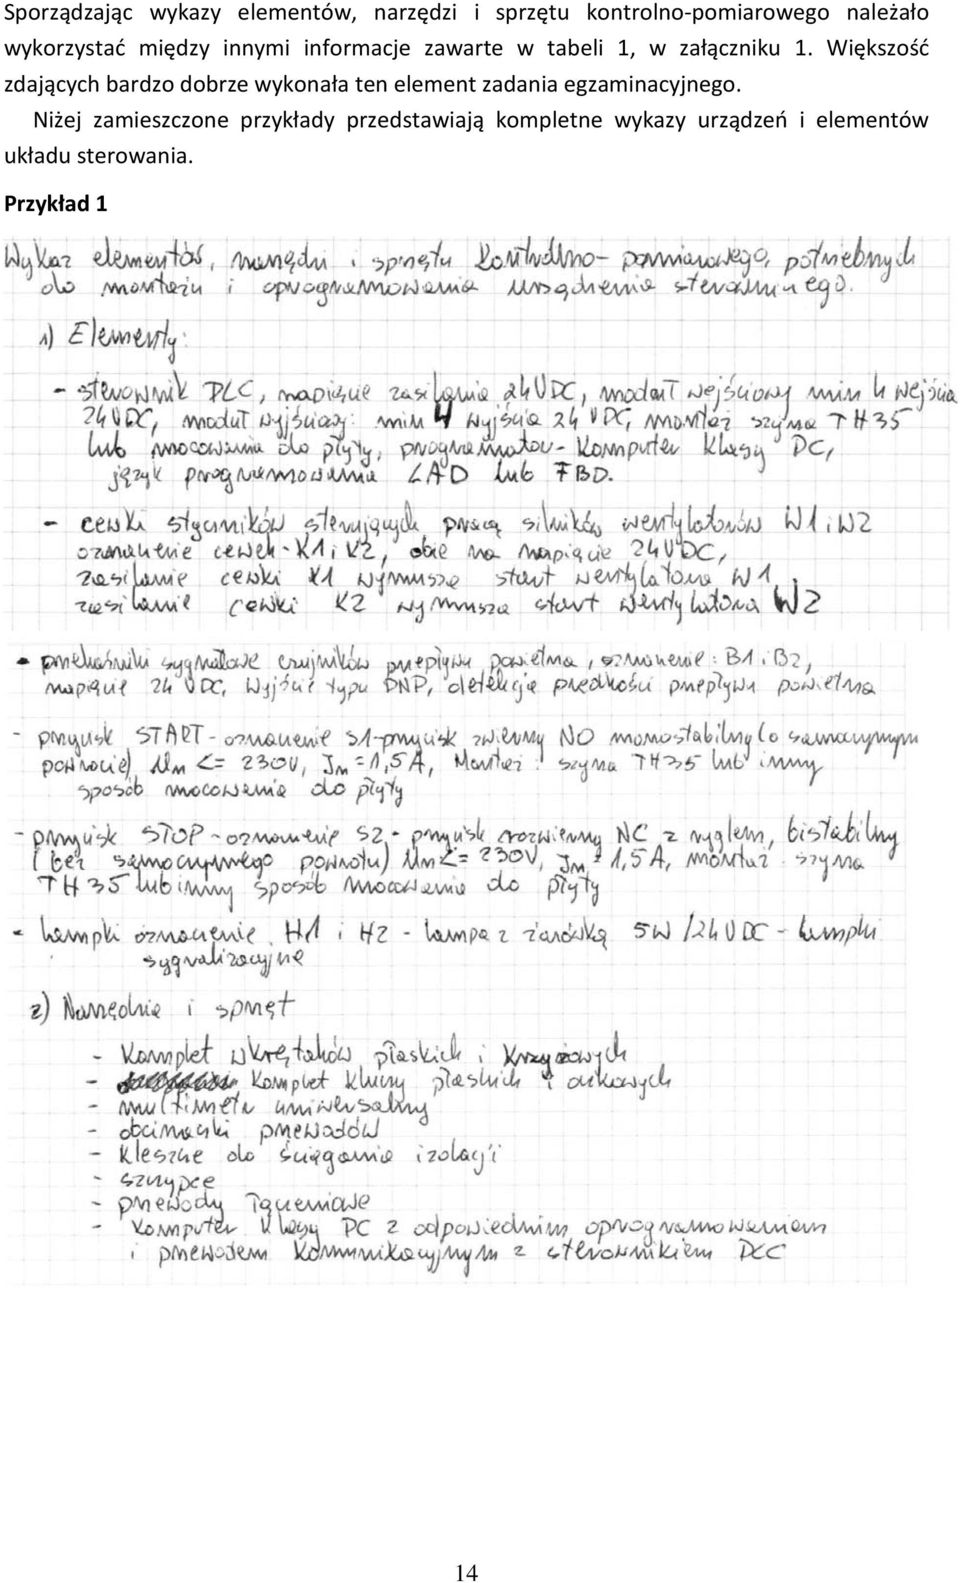 Sporządzając wykazy elementów, narzędzi i sprzętu kontrolno-pomiarowego należało
wykorzystać między innymi informacje zawarte w tabeli 1, w załączniku 1. Większość
zdających bardzo dobrze wykonała ten element zadania egzaminacyjnego.
Niżej zamieszczone przykłady przedstawiają kompletne wykazy urządzeń i elementów
układu sterowania.
Przykład 1
Wykaz elementów, narzędzi i sprzętu kontrolno-pomiarowego, potrzebnych
do montażu i oprogramowania urządzenia sterowniczego.
1) Elementy:
- sterownik PLC, napięcie zasilania 24VDC, moduł wejściowy min 4 wejścia
24VDC, moduł wyjściowy: min 4 wyjścia 24VDC, montaż szyna TH35
lub mocowania do płyty, programator - komputer klasy PC,
język programowania LAD lub FBD.
- cewki styczników sterujących pracą silników wentylatorów W1 i W2
oznaczenie cewek - K1 i K2, obie na napięcie 24VDC,
zasilanie cewki K1 wymusza start wentylatora W1,
zasilanie cewki K2 wymusza start wentylatora W2
- przekaźniki sygnałowe czujników przepływu powietrza, oznaczenie: B1 i B2,
napięcie 24VDC, wyjście typu PNP, detekcja prędkości przepływu powietrza
- przycisk START - oznaczenie S1 - przycisk zwierny NO monostabilny (o samoczynnym
powrocie), Um <= 230V, Im = 1,5A, Montaż: szyna TH35 lub inny
sposób mocowania do płyty
- przycisk STOP - oznaczenie S2 - przycisk rozwierny NC z ryglem, bistabilny
(bez samoczynnego powrotu) Um <= 230V, Im = 1,5A, montaż szyna
TH35 lub inny sposób mocowania do płyty
- lampki oznaczenie H1 i H2 - lampa z żarówką 5W/24VDC - lampki
sygnalizacyjne
2) Narzędzia i sprzęt
- Komplet wkrętaków płaskich i krzyżowych
- Komplet kluczy płaskich i oczkowych
- multimetr uniwersalny
- obcinaczki przewodów
- kleszcze do ściągania izolacji
- szczypce
- przewody łączeniowe
- Komputer klasy PC z odpowiednim oprogramowaniem
i przewodem komunikacyjnym z sterownikiem PLC
14